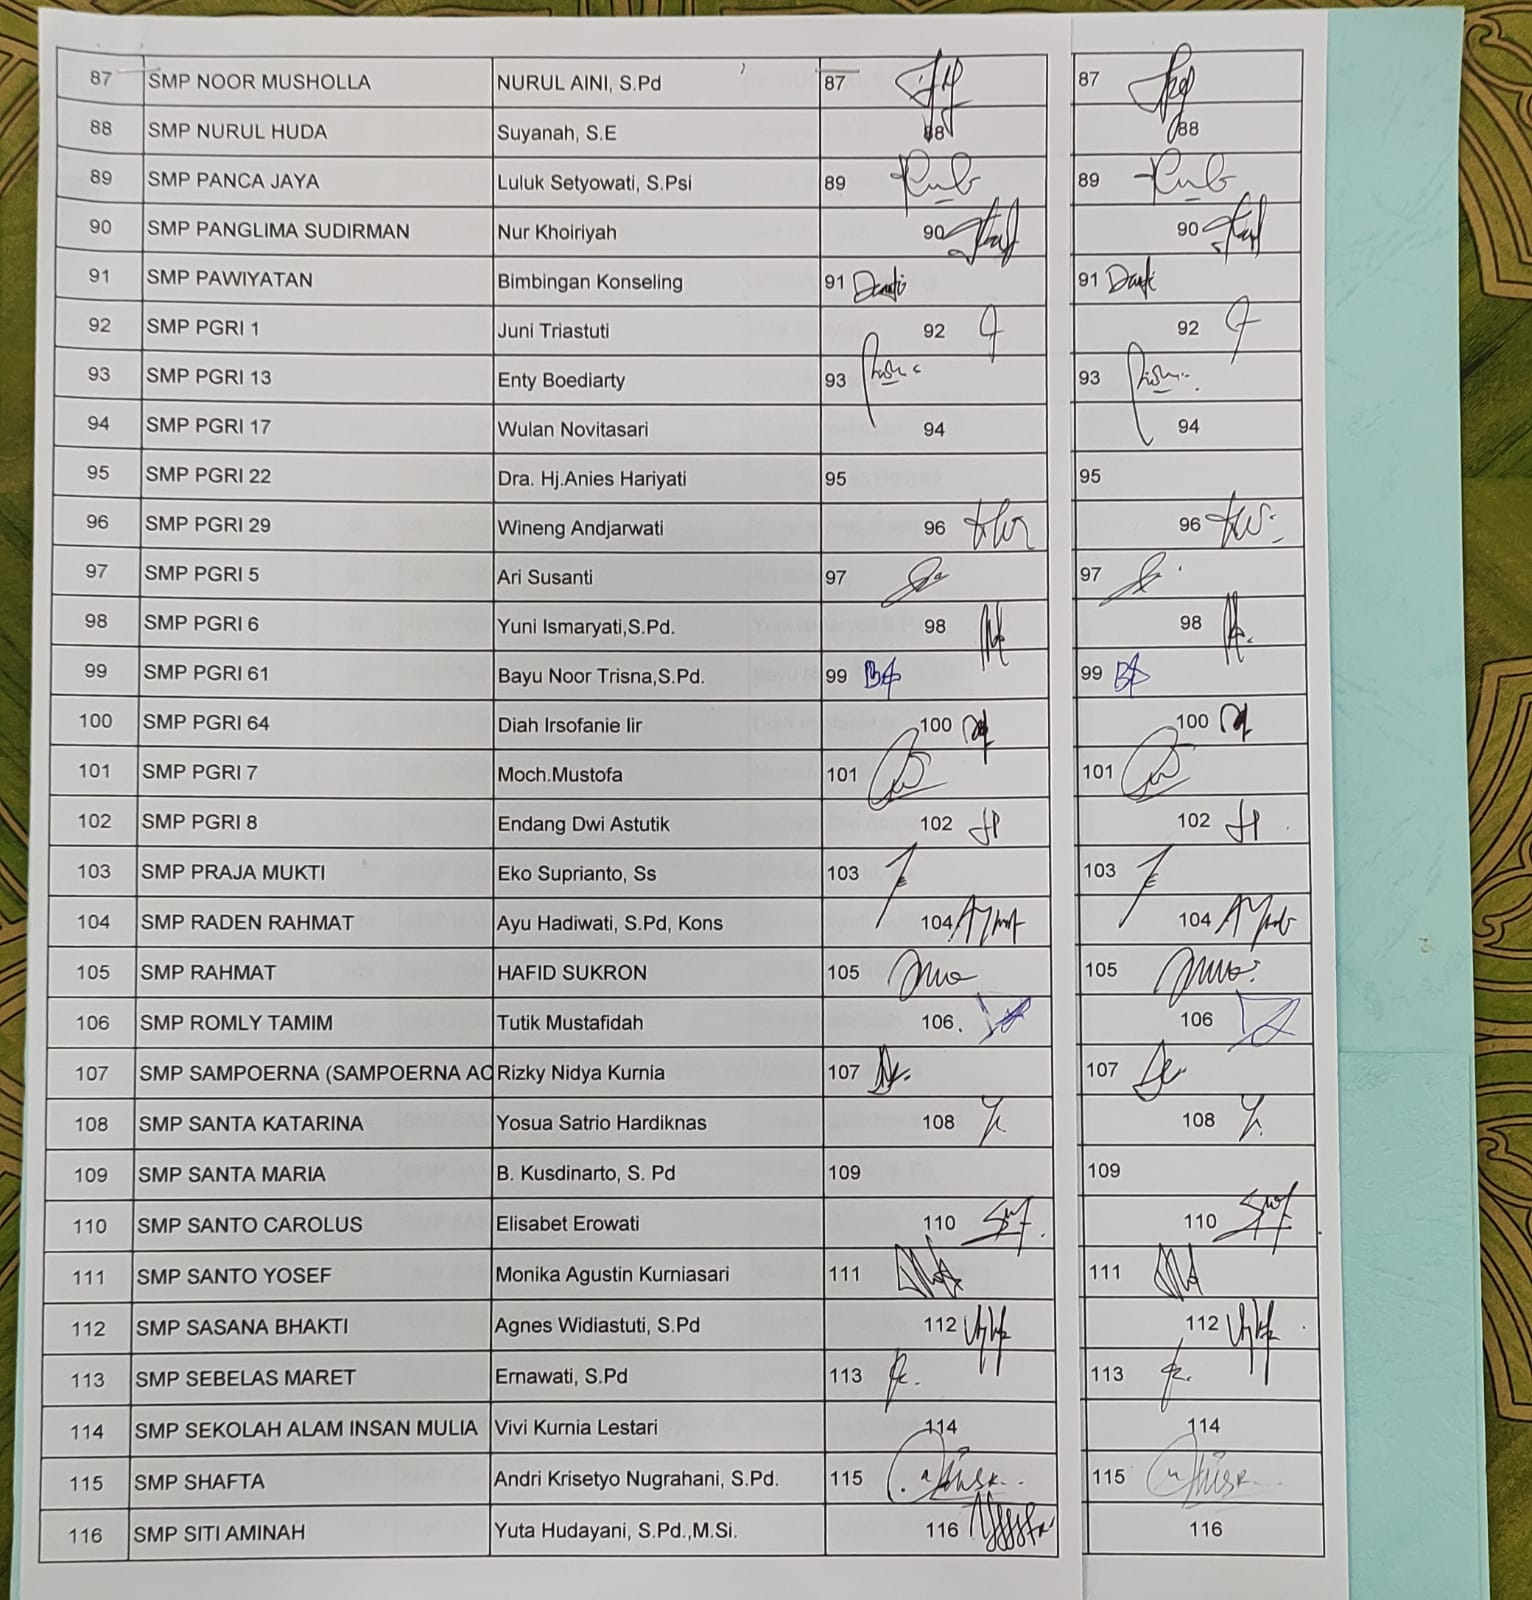 87 SMP NOOR MUSHOLLA NURUL AINI, S.Pd 87 87
88 SMP NURUL HUDA Suyanah, S.E 88 88
89 SMP PANCA JAYA Luluk Setyowati, S.Psi 89 89
90 SMP PANGLIMA SUDIRMAN Nur Khoiriyah 90 90
91 SMP PAWIYATAN Bimbingan Konseling 91 91
92 SMP PGRI 1 Juni Triastuti 92 92
93 SMP PGRI 13 Enty Boediarty 93 93
94 SMP PGRI 17 Wulan Novitasari 94 94
95 SMP PGRI 22 Dra. Hj.Anies Hariyati 95 95
96 SMP PGRI 29 Wineng Andjarwati 96 96
97 SMP PGRI 5 Ari Susanti 97 97
98 SMP PGRI 6 Yuni Ismaryati,S.Pd. 98 98
99 SMP PGRI 61 Bayu Noor Trisna,S.Pd. 99 99
100 SMP PGRI 64 Diah Irsofanie Iir 100 100
101 SMP PGRI 7 Moch.Mustofa 101 101
102 SMP PGRI 8 Endang Dwi Astutik 102 102
103 SMP PRAJA MUKTI Eko Suprianto, Ss 103 103
104 SMP RADEN RAHMAT Ayu Hadiwati, S.Pd, Kons 104 104
105 SMP RAHMAT HAFID SUKRON 105 105
106 SMP ROMLY TAMIM Tutik Mustafidah 106. 106
107 SMP SAMPOERNA (SAMPOERNA AC Rizky Nidya Kurnia 107 107
108 SMP SANTA KATARINA Yosua Satrio Hardiknas 108 108
109 SMP SANTA MARIA B. Kusdinarto, S. Pd 109 109
110 SMP SANTO CAROLUS Elisabet Erowati 110 110
111 SMP SANTO YOSEF Monika Agustin Kurniasari 111 111
112 SMP SASANA BHAKTI Agnes Widiastuti, S.Pd 112 112
113 SMP SEBELAS MARET Ernawati, S.Pd 113 113
114 SMP SEKOLAH ALAM INSAN MULIA Vivi Kurnia Lestari 114 114
115 SMP SHAFTA Andri Krisetyo Nugrahani, S.Pd. 115 115
116 SMP SITI AMINAH Yuta Hudayani, S.Pd.,M.Si. 116 116